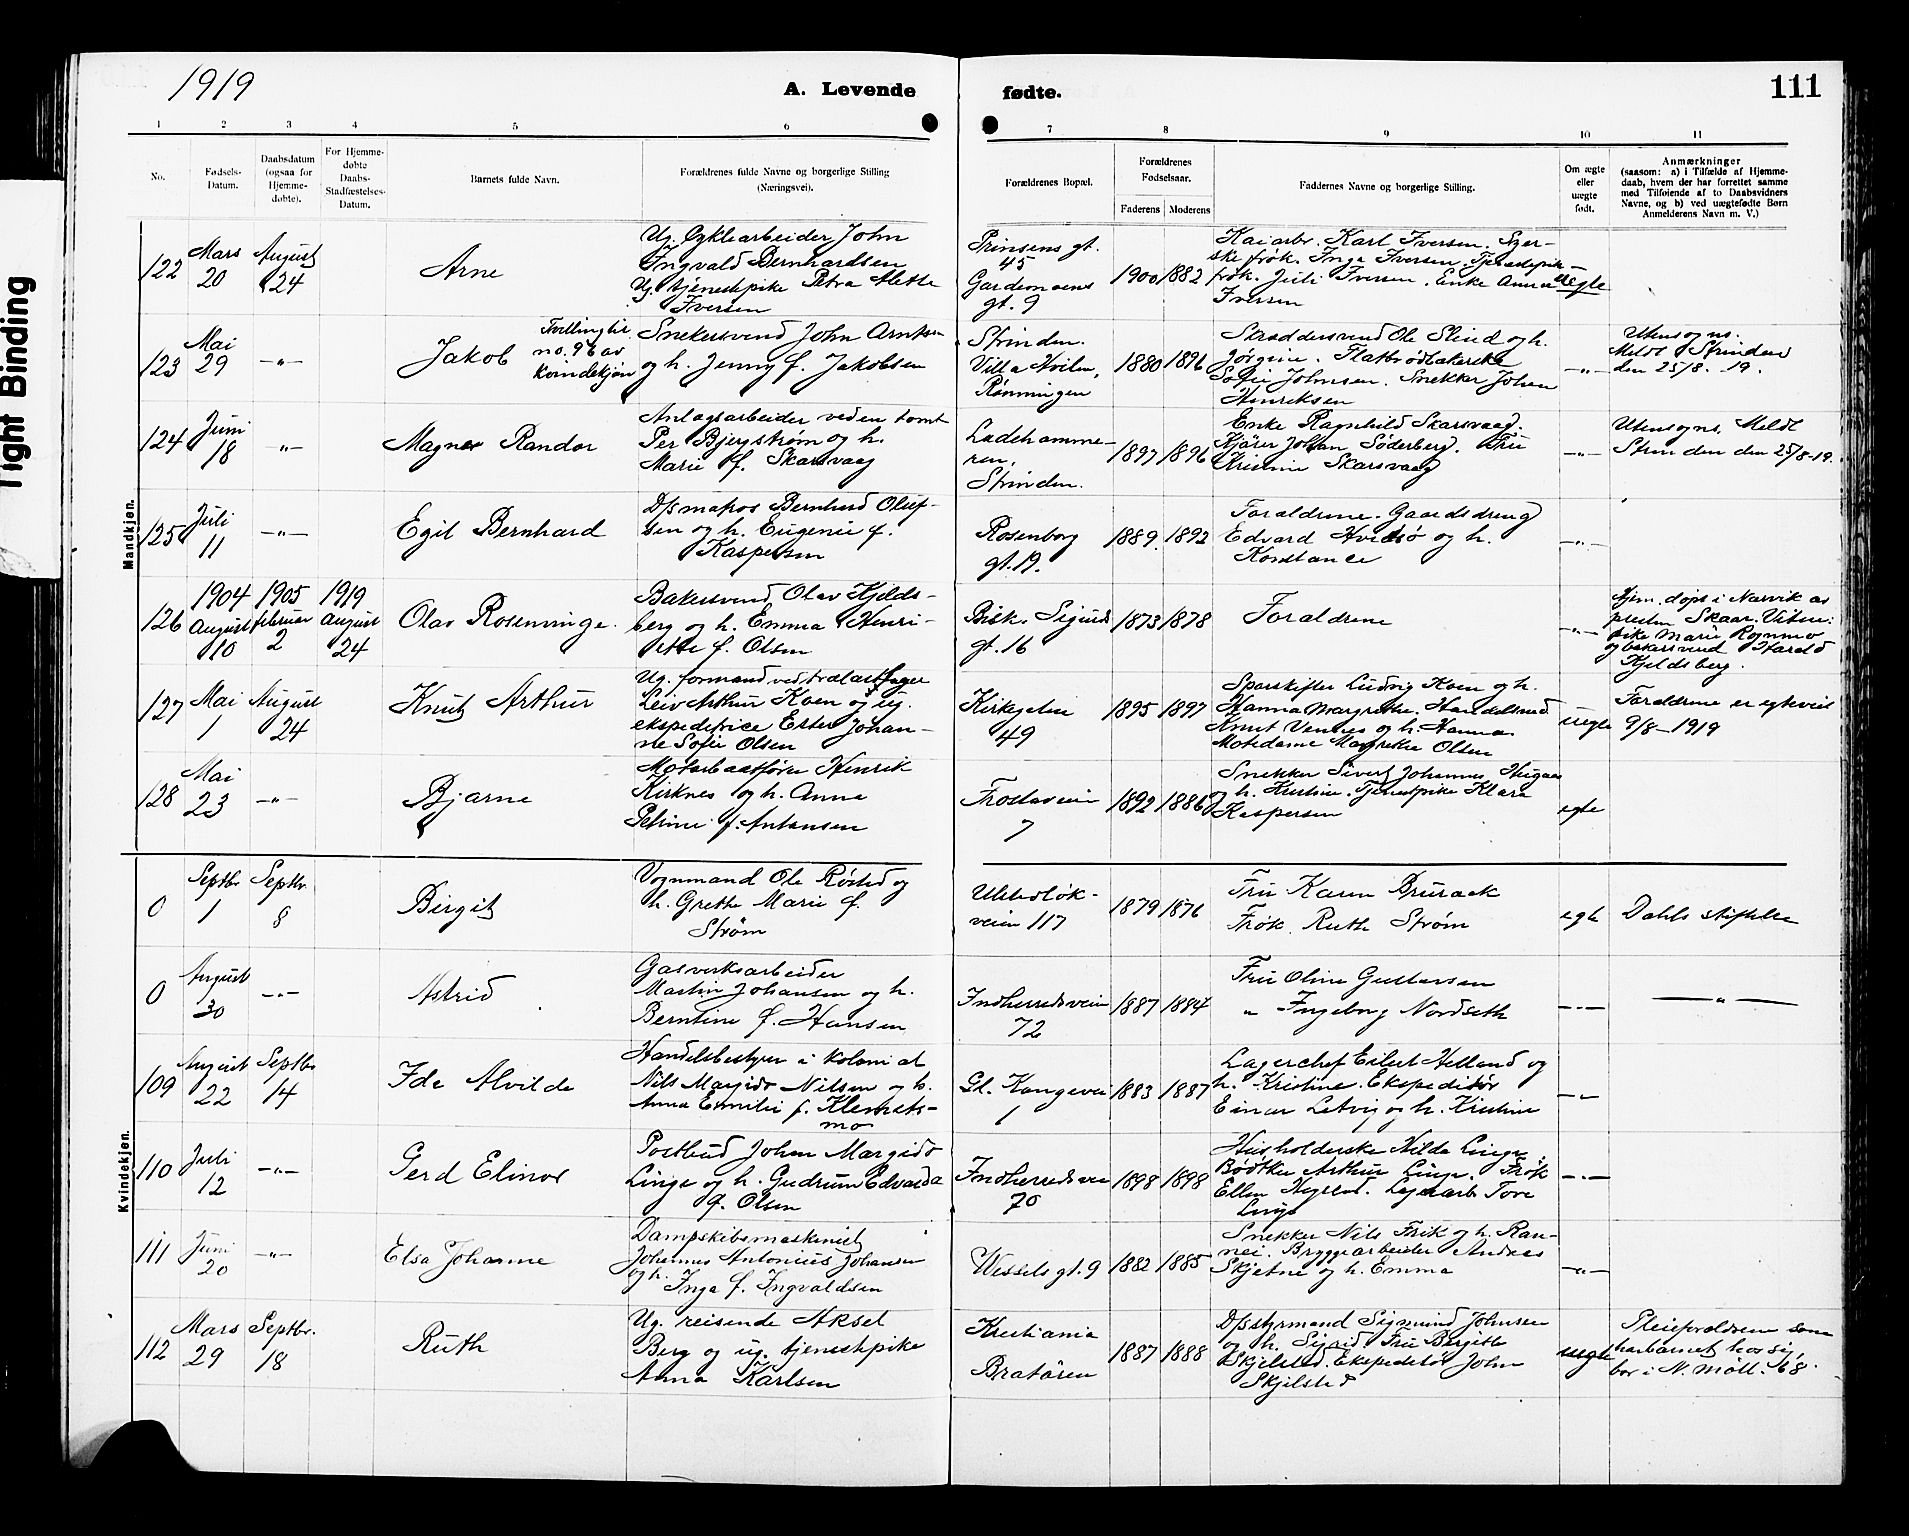 Tight Binding
1919
A. Levende
fødte.
111
1 2 3 4 5 6 7 8 9 10 11
No.
Fødsels-
Datum.
Daabsdatum
(ogsaa for
Hjemme-
døbte).
For Hjemme-
døbte
Daabs-
Stadfæstelses-
Datum.
Barnets fulde Navn.
Forældrenes fulde Navne og borgerlige Stilling
(Næringsvei).
Forældrenes Bopæl.
Forældrenes
Fødselsaar.
Faderens Moderens
Faddernes Navne og borgerlige Stilling.
Om ægte
eller
uægte
født.
Anmærkninger
(saasom: a) i Tilfælde af Hjemme-
daab, hvem der har forrettet samme
med Tilføiende af to Daabsvidners
Navne, og b) ved uægtefødte Børn
Anmelderens Navn m. V.)
Mandkjøn.
122
Mars
20
August
24
Arne
Ug. Cyklearbeider John
Ingvald Bernhardsen
Ug. tjenestpike Petra Alette
Iversen
Prinsens gt.
45
Gardemoens
gt. 9
1900 1882
Kaiarbr. Karl Iversen.
frøk. Inga Iversen.
frøk. Juli Iversen. Enke Anna
Iversen
uegte
123
Mai
29
-"-
Jakob
Tvilling til
no. 96 av
kvindekjøn
Snekersvend John Arntsen
og h. Jenny f. Jakobsen
Strinden.
Villa Hvilen,
Rønningen
1880 1896
Skræddersvend Ole Slind og h.
Jørgine. Flatbrødbakerske
Sofie Johnsen. Snekker Johan
Henriksen
-"-
Utensogns.
Meldt Strinden
den 25/8 - 19.
124
Juni
18
-"-
Magner Randor
Anlægsarbeider ved en tomt
Per Bjergstrøm og h.
Marie f. Skarsvaag
Ladehamme-
ren,
Strinden.
1897 1896
Enke Ragnhild Skarsvaag.
Kjører Johan Søderberg. Fru
Kristine Skarsvaag
-"-
Utensogns. Meldt
Strinden den 25/8-19.
125
Juli
11
-"-
Egil Bernhard
D/s matros Bernhard Oluf-
sen og h. Eugenie f.
Kaspersen
Rosenborg
gt. 19.
1889. 1892
Forældrene. Gaardsdreng
Edvard Hvidsø og h.
Konstance
-"-
126
1904
August
10
1905
februar
2
1919
August
24
Olav Rosenvinge.
Bakersvend Olav Kjelds-
berg og h. Emma Henri-
ette f. Olsen
Bisk. Sigurds
gt. 16
1873 1878
Forældrene
-"-
hjem. døpt i Narvik av
presten Skaar. Vitner:
pike Marie Rognmo
og bakersvend Harald
Kjeldsberg.
127
Mai
1
August
24
Knut Arthur
Ug. formand ved trælastlager
Leiv Arthur Koen og ug.
ekspeditrice Ester Johan-
ne Sofie Olsen
Kirkegaten
49
1895 1897
Sporskifter Ludvig Koen og h.
Hanna Margrethe.
Knut Vennes og h. Hanna.
Motedame Margrethe Olsen
uegte
Forældrene er egteviet
9/8 - 1919
128
Mai
23
-"-
Bjarne
Motorbaatfører Henrik
Kirknes og h. Anna
Petrine f. Antonsen
Frostaveien
7
1892 1886
Snekker Sivert Johannes
og h. Kristine. Tjenestpike Klara
Kaspersen
egte
Kvindekjøn.
0
Septbr.
1
Septbr.
8
Birgit
Vognmand Ole Røsted og
h. Grethe Marie f.
Strøm
veien 117
1879 1876
Fru Karen Bruraak
Frøk. Ruth Strøm
egte
Dahls stiftelse
0
August
30
-"-
Astrid
Gasverksarbeider
Martin Johansen og h.
Berntine f. Hansen
Indherredsveien
72
1887 1884
Fru Oline Gustavsen
" Ingeborg Nordseth
-"-
-"-
109
August
22
Septbr.
14
Ida Alvilde
Handelsbestyrer i kolonial
Nils Margido Nilsen og h.
Anna Emilie f. Klemets-
mo
Gl. Kongevei
1
1883 1887
Lagerchef Eilert Helland og
h. Kristine. Ekspeditør
Einar Letvig og h. Kristine
-"-
110
Juli
12
-"-
Gerd Elinor
Postbud Johan Margido
Linge og h. Gudrun Edvarda
f. Olsen
Indherredsvei
70
1898 1898
Husholderske Hilda Linge.
Bødtker Arthur Linge. Frøk
Ellen Lagerarb Tore
Linge
-"-
111
Juni
20
-"-
Elsa Johanne
Dampskibsmaskinist
Johannes Antonius Johansen
og h. Inga f. Ingvaldsen
Wessels gt. 9
1882 1885
Snekker Nils Frik og h. Ran-
nei. Bryggearbeider Andreas
Skjetne og h. Emma
-"-
112
Mars
29
Septbr.
18
Ruth
Ug. reisende Aksel
Berg og ug. tjenestpike
Anna Karlsen
Kristiania
Bratøren
1887 1888
D/s styrmand Sigmund Johnsen
og h. Sigrid. Fru Bergitte
Skjelstad. Ekspeditør John
Skjelstad
uegte
Pleieforeldrene som
har barnet hos sig,
bor i N. Møll. 68.